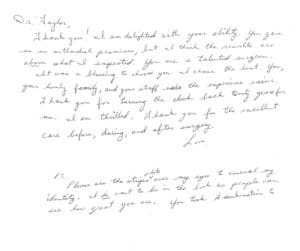 Dr. Taylor,
Thank you! I am delighted with your ability. You gave
me no unfounded promises, but I think the results are
above what I expected. You are a talented surgeon.
It was a blessing to choose you. I chose the best. You,
your lovely family, and your staff made the experience easier.
Thank you for turning the clock back twenty years for
me. I am thrilled. Thank you for the excellent
care before, during, and after surgery.
Love
P.S.
Please use the strips over my eyes to conceal my
identity. I do want to be in the book so people can
see how great you are. You took